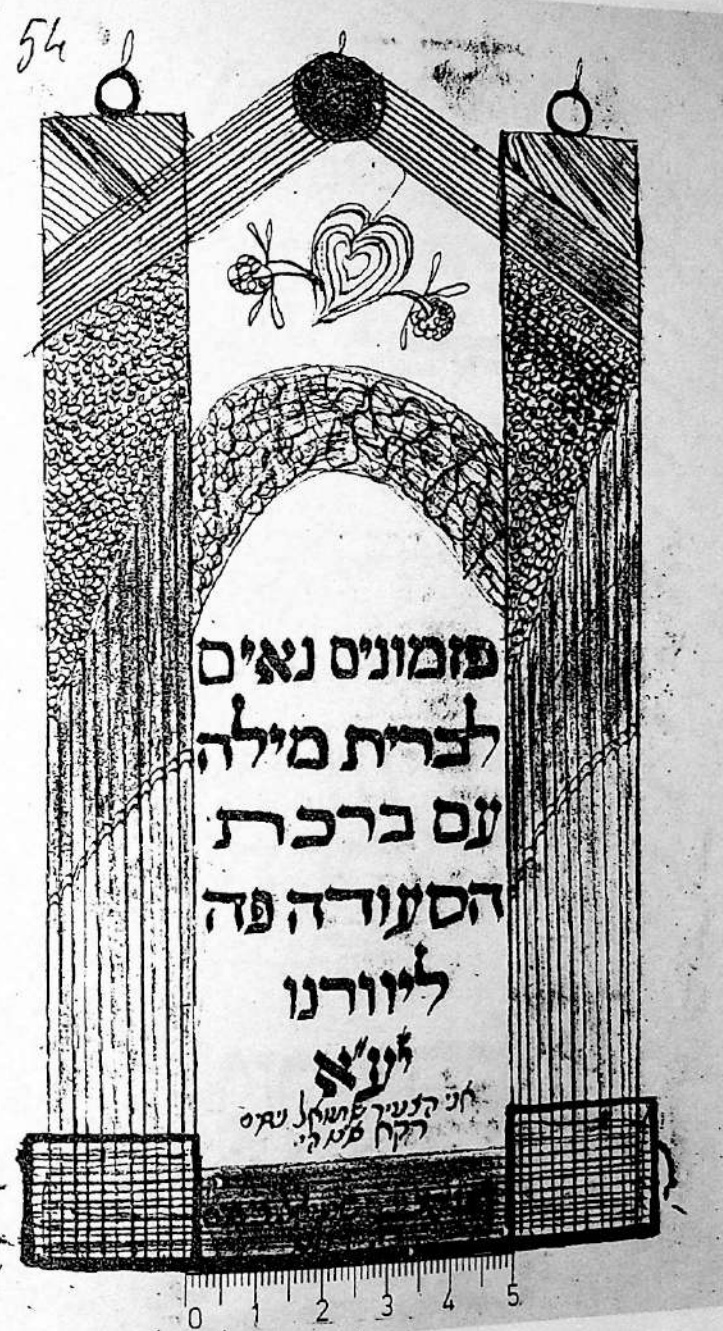 54
פזמונים נאים
לברית מילה
עם ברכת
הסעודה פה
ליוורנו
יע״א
אני הצעיר שמואל נסים
רקח
0 1 2 3 4 5